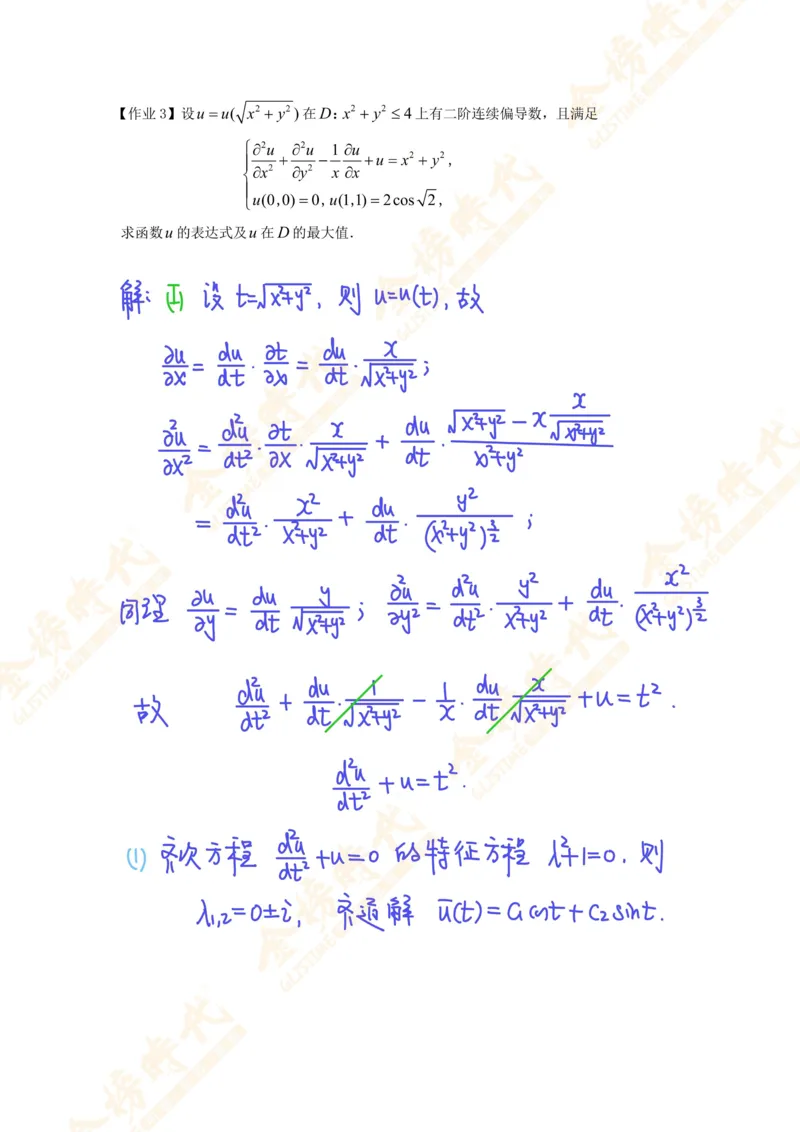 【作业3】设u=u(√(x²+y²))在D:x²+y²≤4上有二阶连续偏导数，且满足
{∂²u/∂x²+∂²u/∂y²-1/x ∂u/∂x+u=x²+y²,
u(0,0)=0,u(1,1)=2cos√2,
求函数u的表达式及u在D的最大值.
解: (I) 设 t=√(x²+y²), 则 u=u(t), 故
∂u/∂x = du/dt · ∂t/∂x = du/dt · x/√(x²+y²) ;
∂²u/∂x² = d²u/dt² · ∂t/∂x · x/√(x²+y²) + du/dt · (√(x²+y²) - x x/√(x²+y²))/(x²+y²)
= d²u/dt² · x²/(x²+y²) + du/dt · y²/(x²+y²)^(3/2) ;
同理 ∂u/∂y = du/dt y/√(x²+y²) ; ∂²u/∂y² = d²u/dt² · y²/(x²+y²) + du/dt · x²/(x²+y²)^(3/2)
故 d²u/dt² + du/dt · 1/√(x²+y²) - 1/x · du/dt x/√(x²+y²) + u = t² .
d²u/dt² + u = t² .
(1) 齐次方程 d²u/dt² + u = 0 的特征方程 λ²+1=0, 则
λ1,2=0±i, 齐通解 ū(t)=C1 cost+C2 sint.
金榜時代
GLISTIME